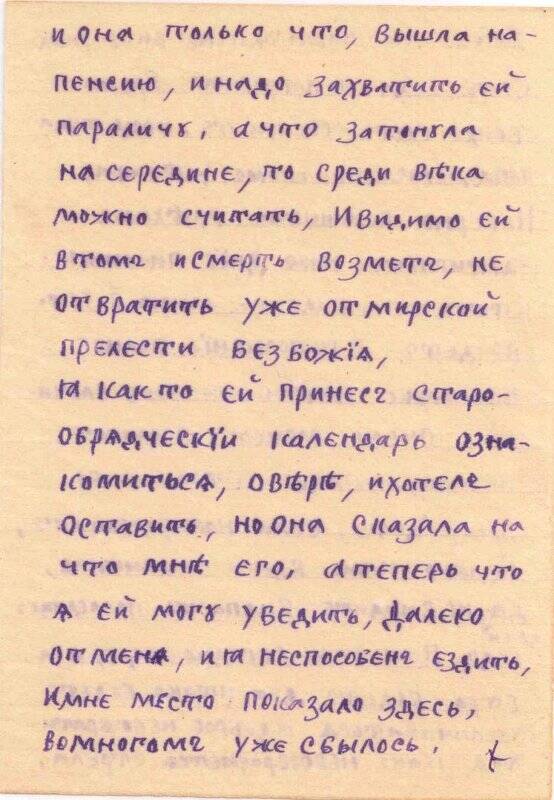 и она только что, вышла на-
пенсию, и надо захватить ей
параличу, а что затонула
на середине, то среди вѣка
можно считать, и видимо ей
втомъ и смерть возметъ, не
отвратить уже от мирской
прелести безбожїя,
ꙗ как то ей принесъ старо-
обрядческїй календарь озна-
комиться, о вѣрѣ, и хотелъ
оставить, но она сказала на
что мнѣ его, а теперь что
я ей могу убедить, далеко
от меня, и ꙗ неспособенъ ездить,
и мне место показало здесь,
во многомъ уже сбылось.